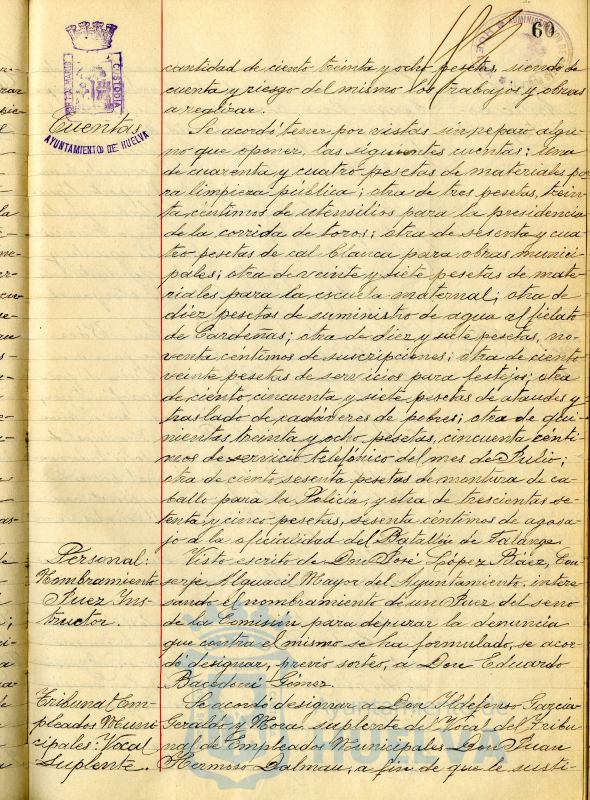 60
cantidad de ciento treinta y ocho pesetas, siendo de
cuenta y riesgo del mismo los trabajos y obras
a realizar.
Cuentas
AYUNTAMIENTO DE HUELVA
Se acordó tener por vistas sin reparo algu-
no que oponer, las siguientes cuentas: una
de cuarenta y cuatro pesetas de materiales pa-
ra limpieza pública; otra de tres pesetas, trein-
ta céntimos de utensilios para la presidencia
de la corrida de toros; otra de sesenta y cua-
tro pesetas de cal blanca para obras munici-
pales; otra de veinte y siete pesetas de mate-
riales para la escuela maternal; otra de
diez pesetas de suministro de agua al fielato
de Cardeñas; otra de diez y siete pesetas, no-
venta céntimos de suscripciones; otra de ciento
veinte pesetas de servicios para festejos; otra
de ciento cincuenta y siete pesetas de ataudes y
traslado de cadáveres de pobres; otra de qui-
nientas treinta y ocho pesetas, cincuenta cénti-
mos de servicio telefónico del mes de Julio;
otra de ciento sesenta pesetas de montura de ca-
ballo para la Policía, y otra de trescientas se-
tenta y cinco pesetas, sesenta céntimos de agasa-
jo a la oficialidad del Batallón de Falange.
Personal:
Nombramiento
Juez Ins-
tructor.
Visto escrito de Don José López Báez, Con-
serje Alguacil Mayor del Ayuntamiento, intere-
sando el nombramiento de un Juez del seno
de la Comisión para depurar la denuncia
que contra el mismo se ha formulado, se acor-
dó designar, previo sorteo, a Don Eduardo
Gómez.
Tribunal Em-
pleados Muni-
cipales: Vocal
Suplente.
Se acordó designar a Don Ildefonso García
Geraldo y Mora, suplente del Vocal del Tribu-
nal de Empleados Municipales Don Juan
Hermoso Dalmau, a fin de que le susti-
HUELVA